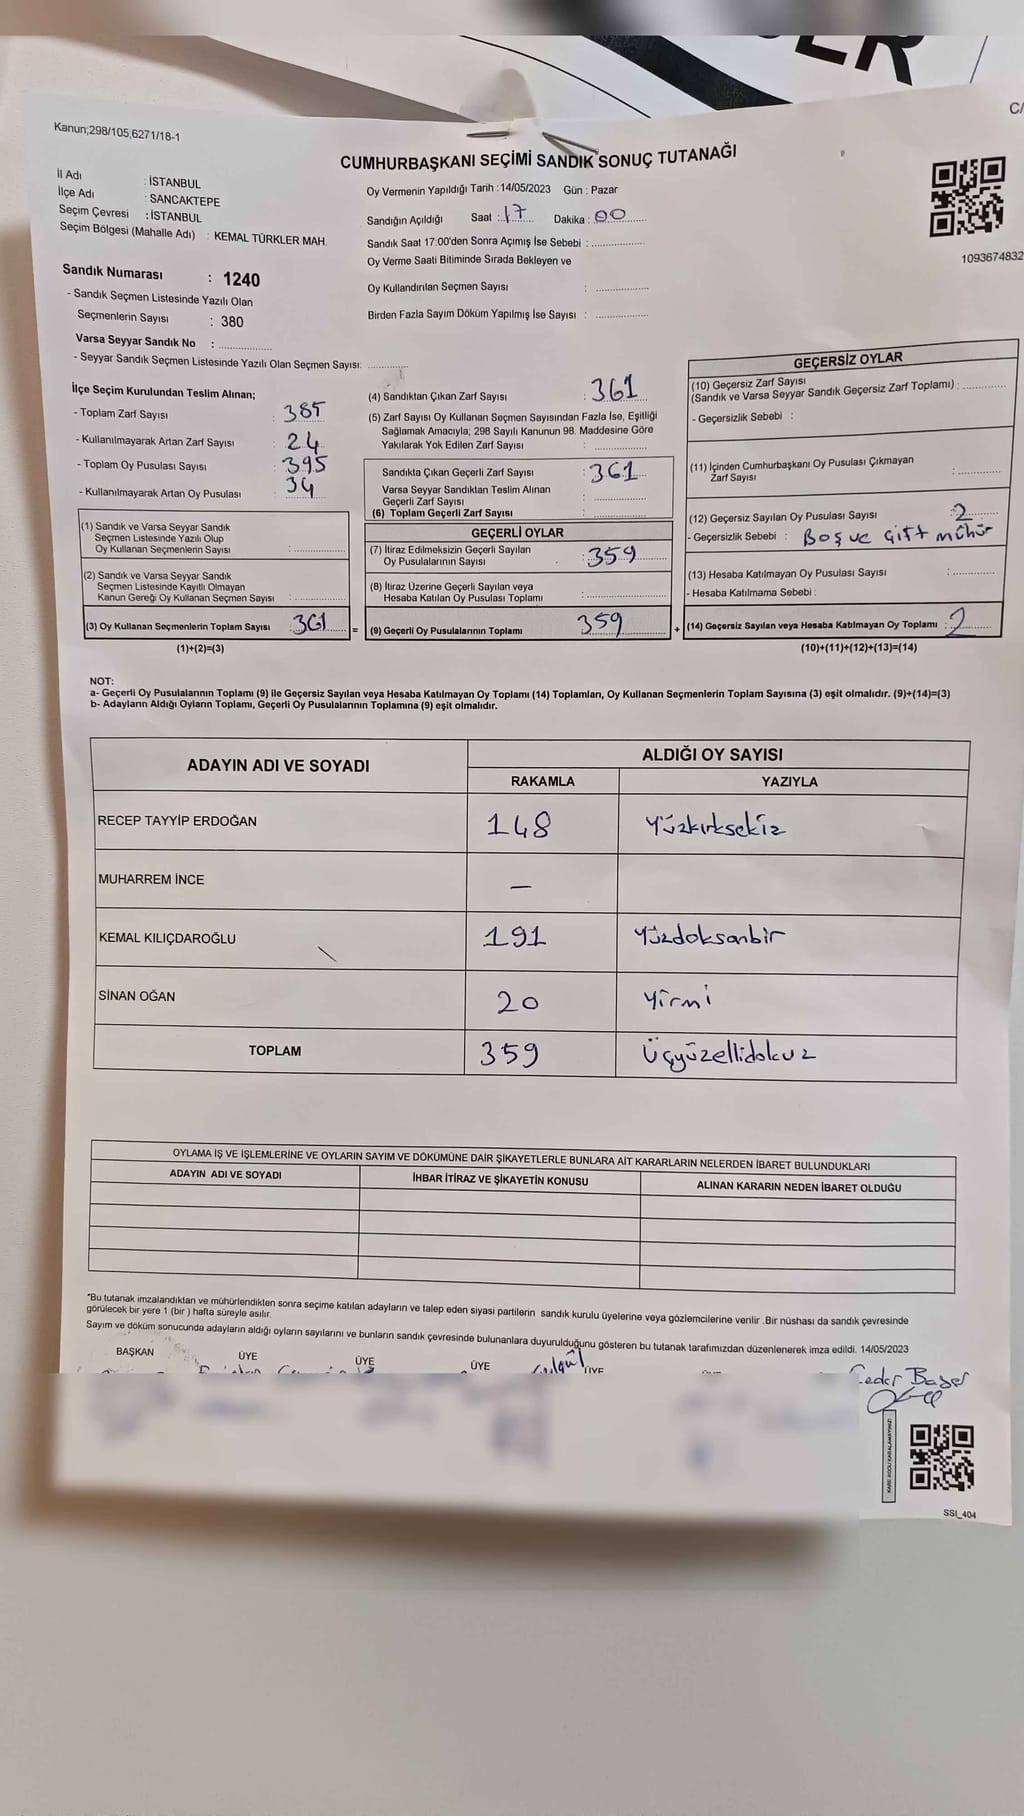 ER
C/
Kanun;298/105,6271/18-1
CUMHURBAŞKANI SEÇİMİ SANDIK SONUÇ TUTANAĞI
İl Adı : İSTANBUL
İlçe Adı : SANCAKTEPE
Seçim Çevresi : İSTANBUL
Seçim Bölgesi (Mahalle Adı) : KEMAL TÜRKLER MAH.
Oy Vermenin Yapıldığı Tarih : 14/05/2023 Gün : Pazar
Sandığın Açıldığı Saat : 17 Dakika : 00
Sandık Saat 17:00'den Sonra Açımış İse Sebebi :
Oy Verme Saati Bitiminde Sırada Bekleyen ve
Oy Kullandırılan Seçmen Sayısı :
Birden Fazla Sayım Döküm Yapılmış İse Sayısı :
1093674832
Sandık Numarası : 1240
- Sandık Seçmen Listesinde Yazılı Olan
Seçmenlerin Sayısı : 380
Varsa Seyyar Sandık No :
- Seyyar Sandık Seçmen Listesinde Yazılı Olan Seçmen Sayısı:
İlçe Seçim Kurulundan Teslim Alınan;
- Toplam Zarf Sayısı : 385
- Kullanılmayarak Artan Zarf Sayısı : 24
- Toplam Oy Pusulası Sayısı : 395
- Kullanılmayarak Artan Oy Pusulası : 34
(1) Sandık ve Varsa Seyyar Sandık
Seçmen Listesinde Yazılı Olup
Oy Kullanan Seçmenlerin Sayısı :
(2) Sandık ve Varsa Seyyar Sandık
Seçmen Listesinde Kayıtlı Olmayan
Kanun Gereği Oy Kullanan Seçmen Sayısı :
(3) Oy Kullanan Seçmenlerin Toplam Sayısı : 361 =
(1)+(2)=(3)
(4) Sandıktan Çıkan Zarf Sayısı : 361
(5) Zarf Sayısı Oy Kullanan Seçmen Sayısından Fazla İse, Eşitliği
Sağlamak Amacıyla; 298 Sayılı Kanunun 98. Maddesine Göre
Yakılarak Yok Edilen Zarf Sayısı :
Sandıkta Çıkan Geçerli Zarf Sayısı : 361
Varsa Seyyar Sandıktan Teslim Alınan
Geçerli Zarf Sayısı :
(6) Toplam Geçerli Zarf Sayısı :
GEÇERLİ OYLAR
(7) İtiraz Edilmeksizin Geçerli Sayılan
Oy Pusulalarının Sayısı : 359
(8) İtiraz Üzerine Geçerli Sayılan veya
Hesaba Katılan Oy Pusulası Toplamı :
(9) Geçerli Oy Pusulalarının Toplamı 359 +
GEÇERSİZ OYLAR
(10) Geçersiz Zarf Sayısı
(Sandık ve Varsa Seyyar Sandık Geçersiz Zarf Toplamı) :
- Geçersizlik Sebebi :
(11) İçinden Cumhurbaşkanı Oy Pusulası Çıkmayan
Zarf Sayısı :
(12) Geçersiz Sayılan Oy Pusulası Sayısı : 2
- Geçersizlik Sebebi : Boş ve Çift mühür
(13) Hesaba Katılmayan Oy Pusulası Sayısı :
- Hesaba Katılmama Sebebi :
(14) Geçersiz Sayılan veya Hesaba Katılmayan Oy Toplamı : 2
(10)+(11)+(12)+(13)=(14)
NOT:
a- Geçerli Oy Pusulalarının Toplamı (9) ile Geçersiz Sayılan veya Hesaba Katılmayan Oy Toplamı (14) Toplamları, Oy Kullanan Seçmenlerin Toplam Sayısına (3) eşit olmalıdır. (9)+(14)=(3)
b- Adayların Aldığı Oyların Toplamı, Geçerli Oy Pusulalarının Toplamına (9) eşit olmalıdır.
ADAYIN ADI VE SOYADI
ALDIĞI OY SAYISI
RAKAMLA YAZIYLA
RECEP TAYYİP ERDOĞAN 148 Yüzkırksekiz
MUHARREM İNCE —
KEMAL KILIÇDAROĞLU 191 Yüzdoksanbir
SİNAN OĞAN 20 Yirmi
TOPLAM 359 Üçyüzellidokuz
OYLAMA İŞ VE İŞLEMLERİNE VE OYLARIN SAYIM VE DÖKÜMÜNE DAİR ŞİKAYETLERLE BUNLARA AİT KARARLARIN NELERDEN İBARET BULUNDUKLARI
ADAYIN ADI VE SOYADI İHBAR İTİRAZ VE ŞİKAYETİN KONUSU ALINAN KARARIN NEDEN İBARET OLDUĞU
"Bu tutanak imzalandıktan ve mühürlendikten sonra seçime katılan adayların ve talep eden siyasi partilerin sandık kurulu üyelerine veya gözlemcilerine verilir .Bir nüshası da sandık çevresinde
görülecek bir yere 1 (bir ) hafta süreyle asılır.
Sayım ve döküm sonucunda adayların aldığı oyların sayılarını ve bunların sandık çevresinde bulunanlara duyurulduğunu gösteren bu tutanak tarafımızdan düzenlenerek imza edildi. 14/05/2023
BAŞKAN ÜYE ÜYE ÜYE ÜYE
SSI_404